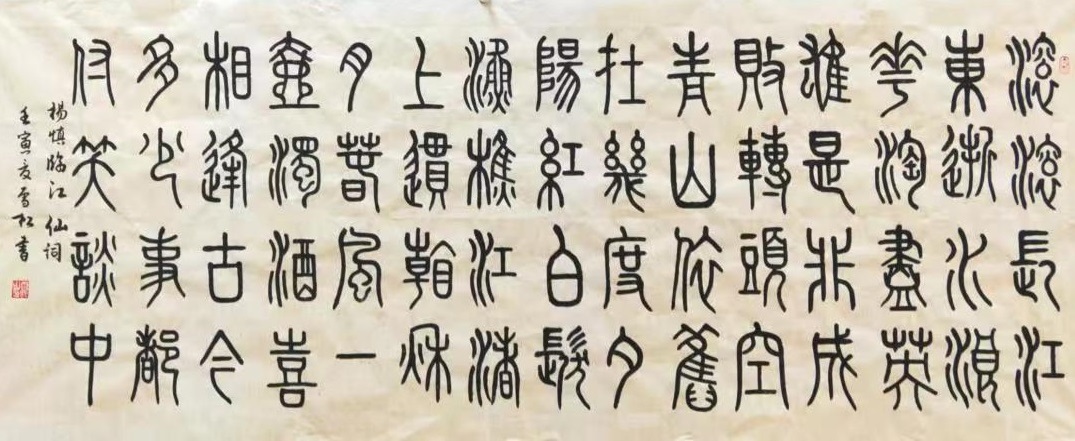 滾滾長江
東逝水浪
花淘盡英
雄是非成
敗轉頭空
青山依舊
在幾度夕
陽紅白髮
漁樵江渚
上慣看秋
月春風一
壺濁酒喜
相逢古今
多少事都
付笑談中
楊慎臨江仙詞
壬寅夏雪松書